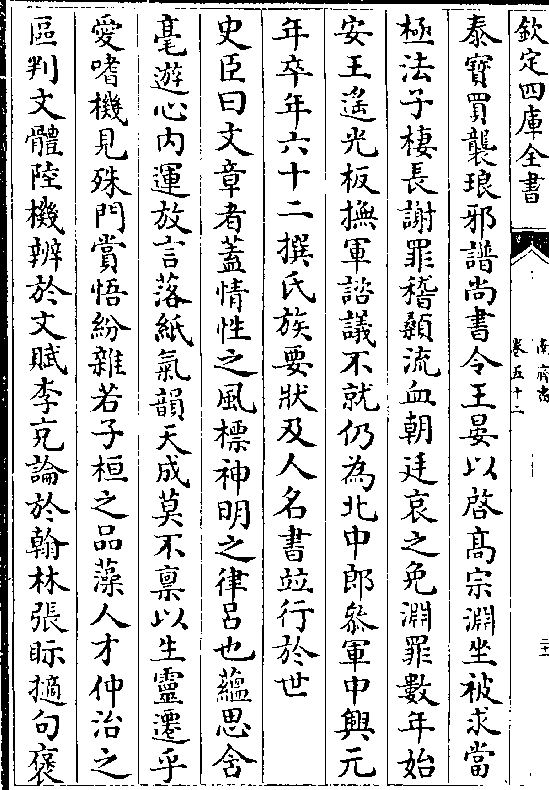 欽定四庫全書
南齊書
卷五十二
泰寶買襲琅邪譜尚書令王晏以啓髙宗淵坐被求當
極法子棲長謝罪稽顙流血朝廷哀之免淵罪數年始
安王遙光板撫軍諮議不就仍為北中郎叅軍中興元
年卒年六十二撰氏族要狀及人名書竝行於世
史臣曰文章者蓋情性之風標神明之律吕也藴思含
毫遊心内運放言落紙氣韻天成莫不禀以生靈遷乎
愛嗜機見殊門賞悟紛雜若子桓之品藻人才仲洽之
區判文體陸機辨於文賦李充論於翰林張眎擿句褒